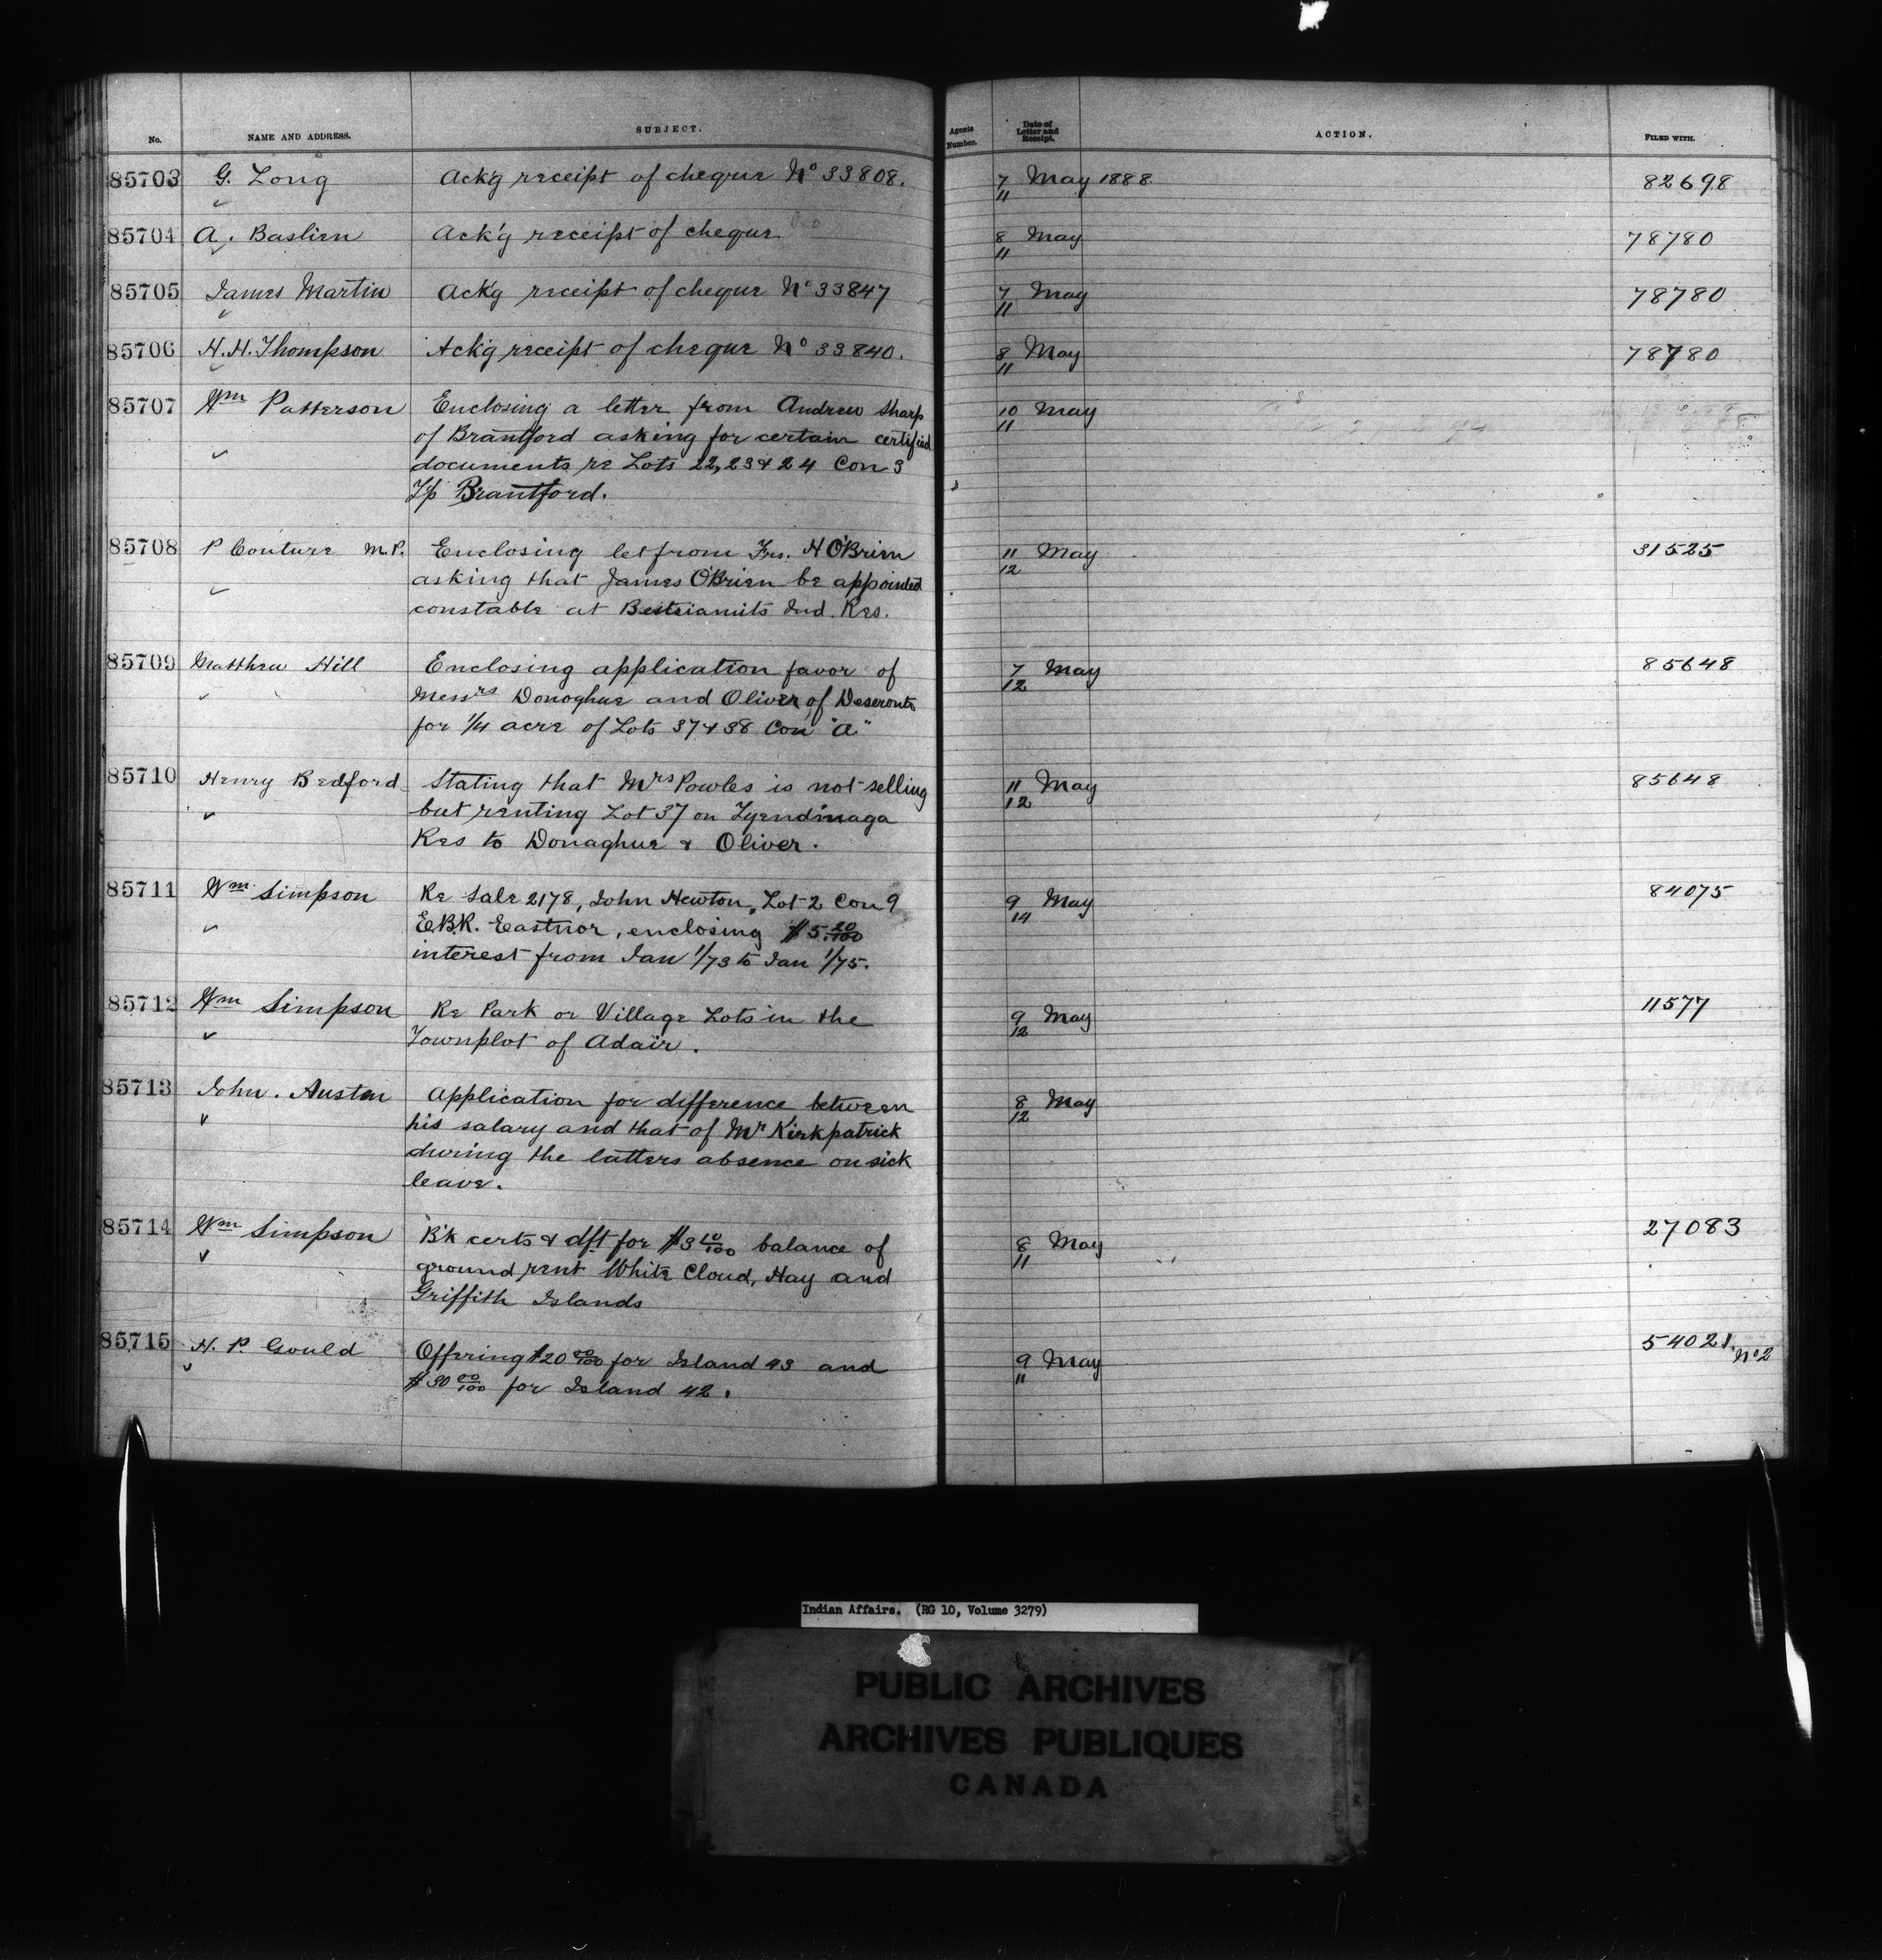 No. NAME AND ADDRESS. SUBJECT. Agents Number. Date of Letter and Receipt. ACTION. FILED WITH.
85703 G. Long Ack'g receipt of cheque No 33808. 7/11 May 1888 82698
85704 A. Bastien Ack'g receipt of cheque 8/11 May 78780
85705 James Martin Ack'g receipt of cheque No 33847 7/11 May 78780
85706 H. H. Thompson Ack'g receipt of cheque No 33840. 8/11 May 78780
85707 Wm Patterson Enclosing a letter from Andrew Sharp 10/11 May
of Brantford asking for certain certified
documents re Lots 22, 23 & 24 Con 3
T/p Brantford.
85708 P Couture M.P. Enclosing let from Frs. H O'Brien 11/12 May 31525
asking that James O'Brien be appointed
constable at Bestsiamits Ind. Res.
85709 Matthew Hill Enclosing application favor of 7/12 May 85648
Messrs Donoghue and Oliver of Deseronto
for 1/4 acre of Lots 37 & 38 Con "A"
85710 Henry Bedford Stating that Mrs Powles is not selling 11/12 May 85648
but renting Lot 37 on Tyendinaga
Res to Donaghue & Oliver.
85711 Wm Simpson Re Sale 2178, John Newton, Lot 2 Con 9 9/14 May 84075
E.B.R. Eastnor, enclosing $5.20/100
interest from Jan 1/73 to Jan 1/75.
85712 Wm Simpson Re Park or Village Lots in the 9/12 May 11577
Townplot of Adair.
85713 John. Austin Application for difference between 8/12 May
his salary and that of Mr Kirkpatrick
during the latters absence on sick
leave.
85714 Wm Simpson B'k certs & dft for $3 10/100 balance of 8/11 May 27083
ground rent White Cloud, Hay and
Griffith Islands
85715 H. P. Gould Offering $20 00/100 for Island 43 and 9/11 May 54021. No 2
$30 00/100 for Island 42.
Indian Affairs. (RG 10, Volume 3279)
PUBLIC ARCHIVES
ARCHIVES PUBLIQUES
CANADA